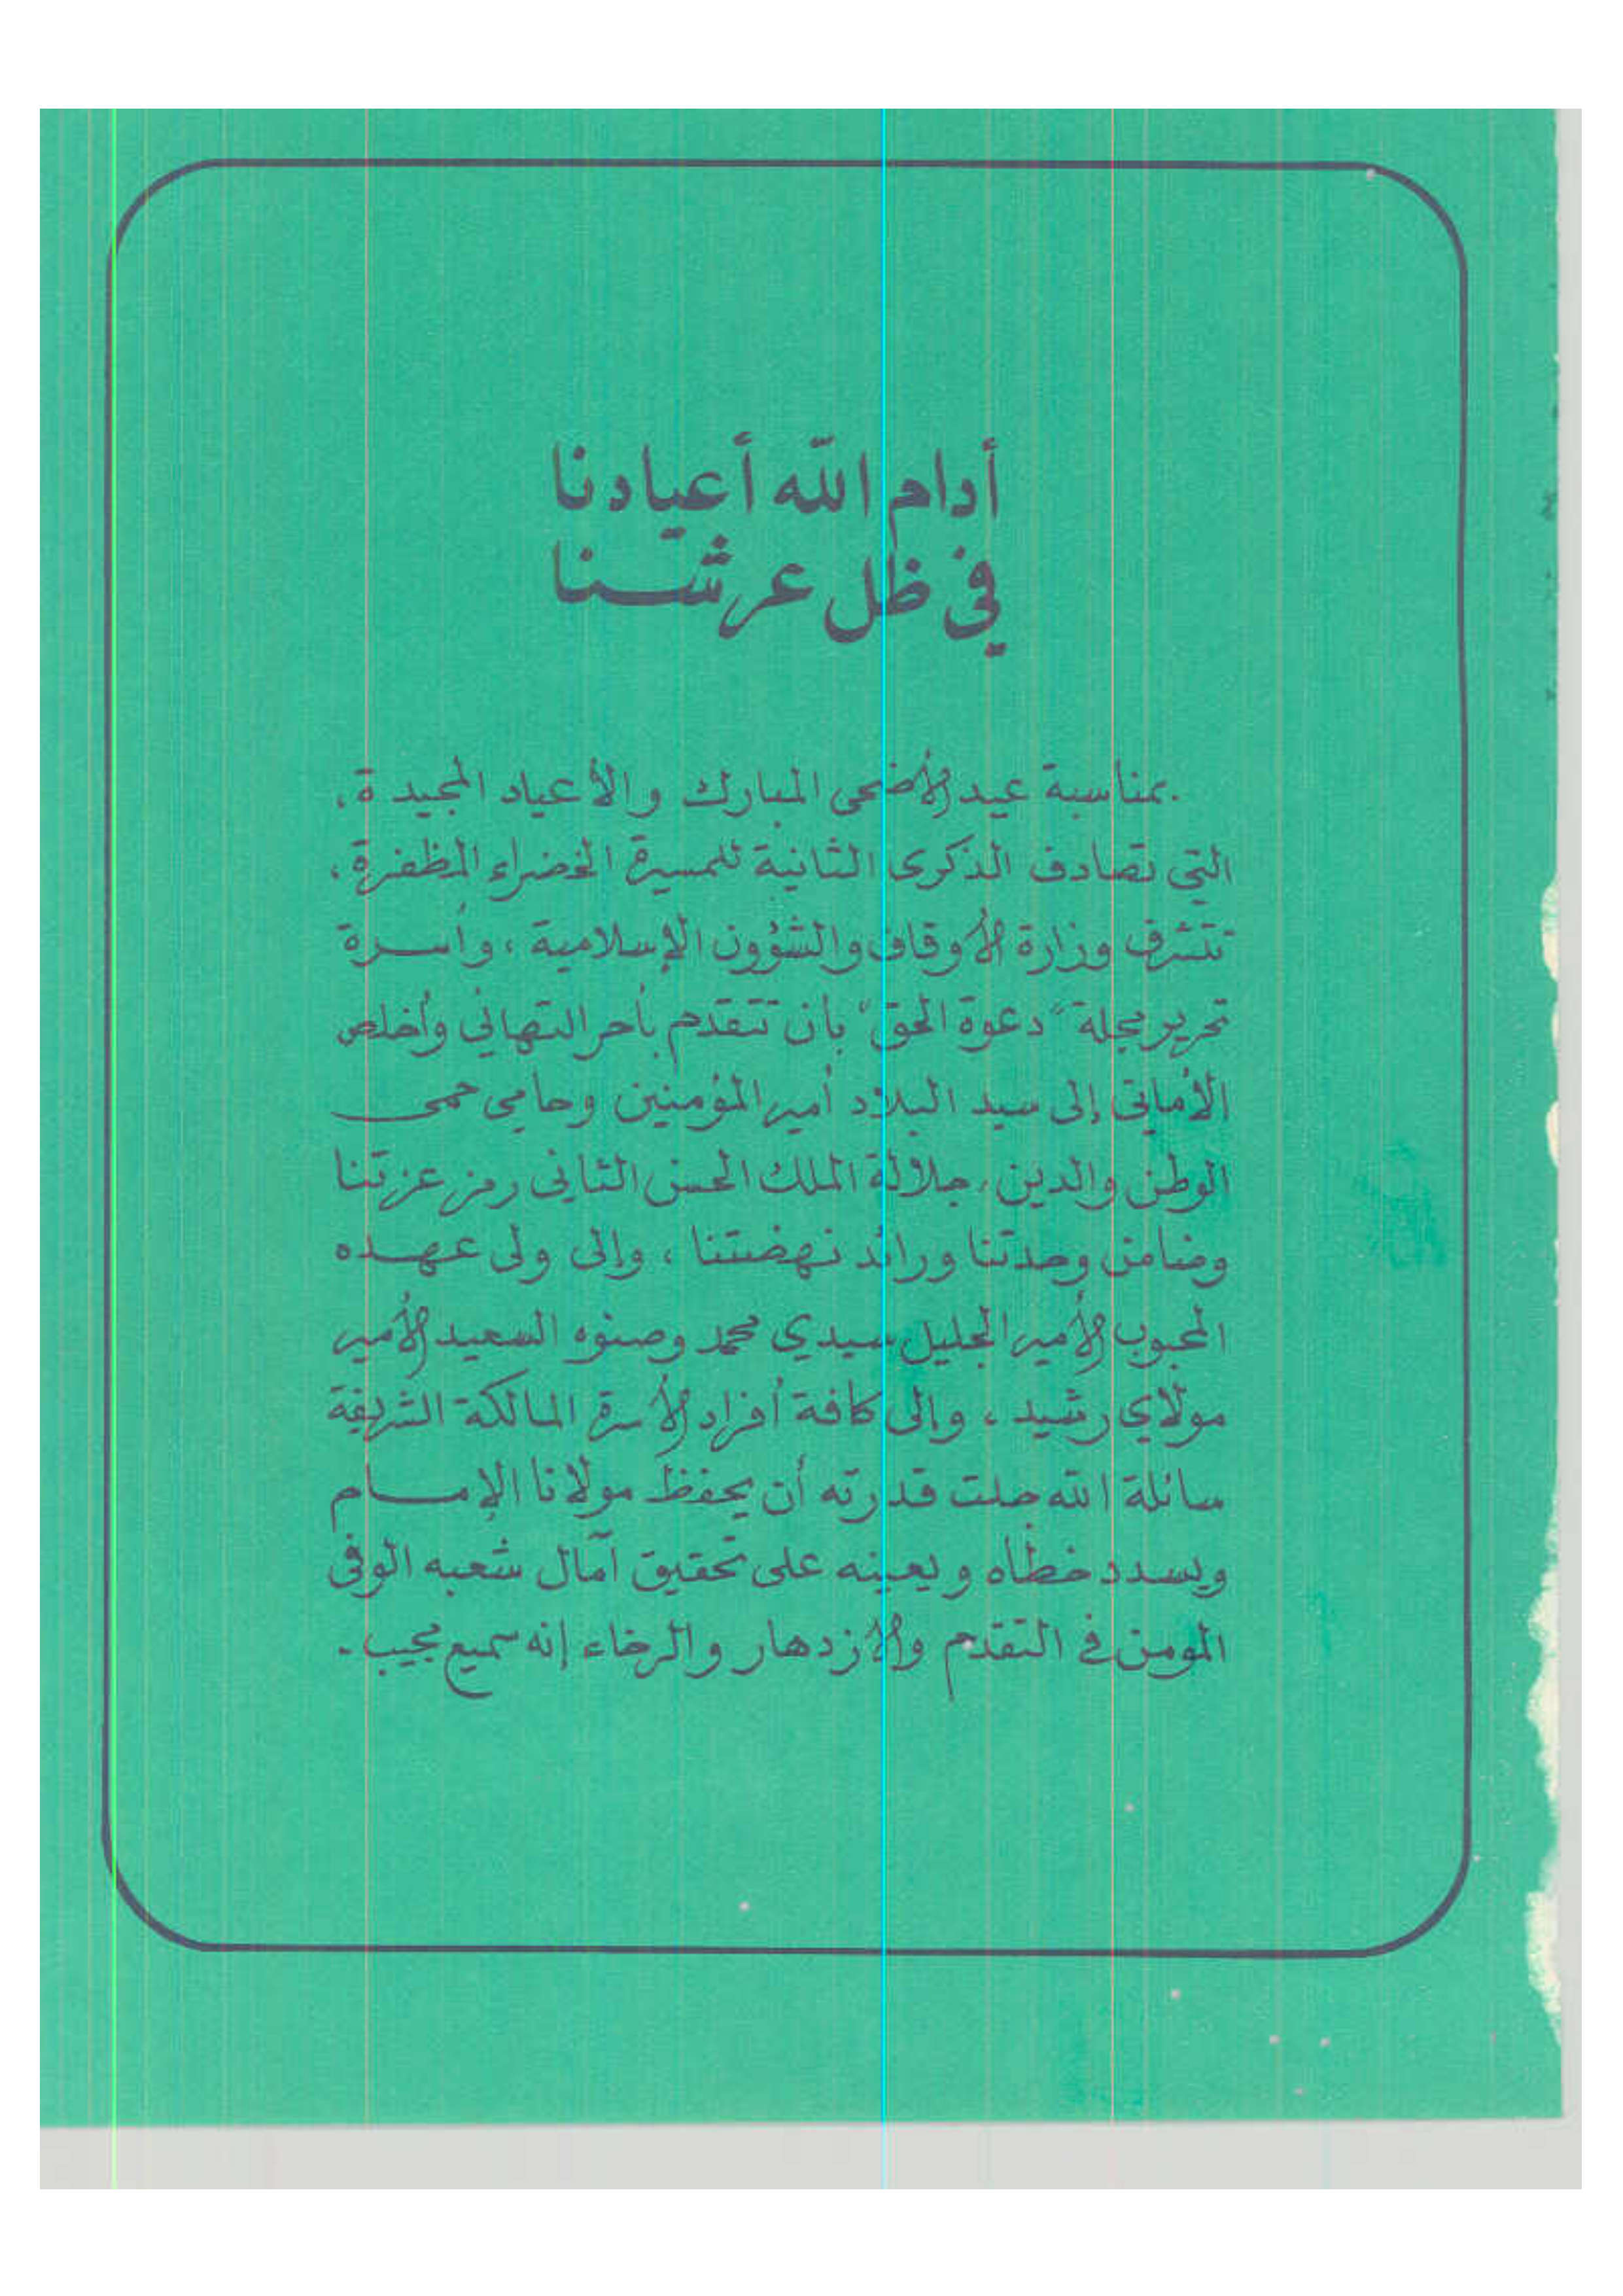 أدام الله أعيادنا
في ظل عرشنا
بمناسبة عيد الأضحى المبارك والأعياد المجيدة،
التي تصادف الذكرى الثانية للمسيرة الخضراء المظفرة،
تتشرف وزارة الأوقاف والشؤون الإسلامية، وأسرة
تحرير مجلة "دعوة الحق" بأن تتقدم بأحر التهاني وأخلص
الأماني إلى سيد البلاد أمير المؤمنين وحامي حمى
الوطن والدين، جلالة الملك الحسن الثاني رمز عزتنا
وضامن وحدتنا ورائد نهضتنا، وإلى ولى عهده
المحبوب الأمير الجليل سيدي محمد وصنوه السعيد الأمير
مولاي رشيد، وإلى كافة أفراد الأسرة المالكة الشريفة
سائلة الله جلت قدرته أن يحفظ مولانا الإمام
ويسدد خطاه ويعينه على تحقيق آمال شعبه الوفى
المومن في التقدم والازدهار والرخاء إنه سميع مجيب.